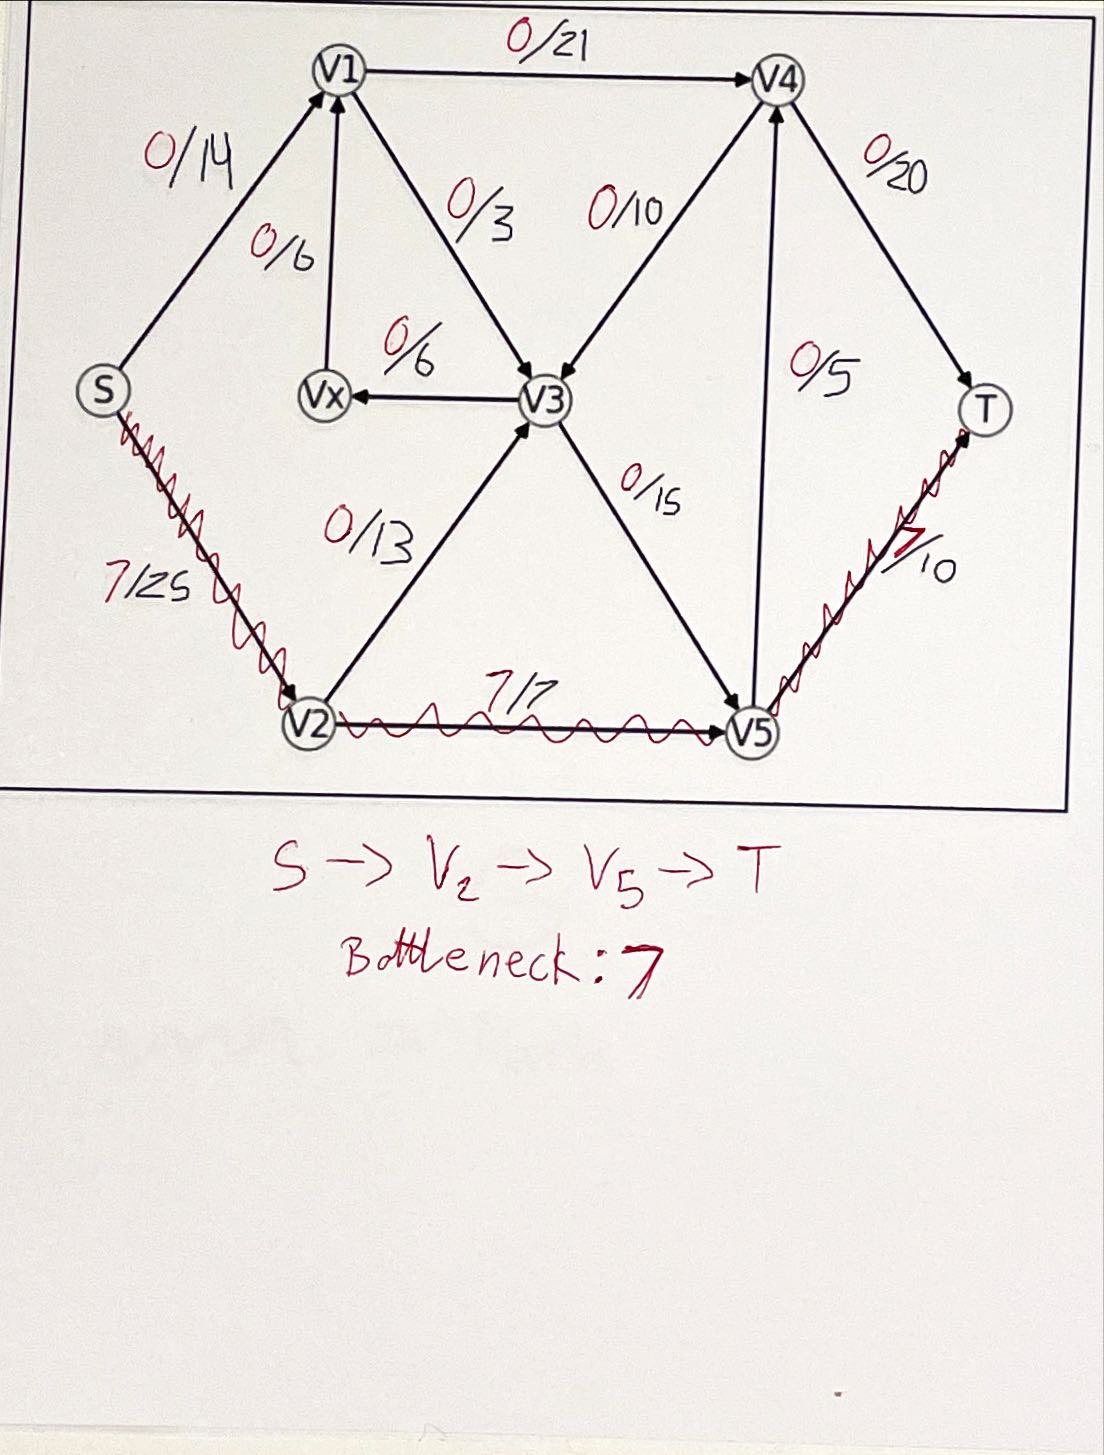 0/21
V1
V4
0/14
0/20
0/3
0/10
0/6
0/6
0/5
S
Vx
V3
T
0/15
0/13
7/10
7/25
7/7
V2
V5
S -> V2 -> V5 -> T
Bottleneck: 7